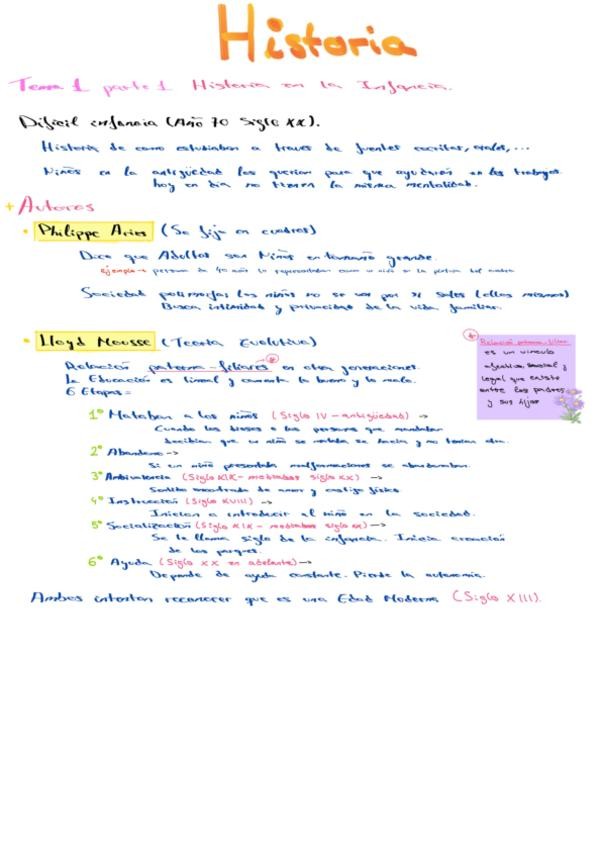 Historia
Tema 1 parte 1 Historia en la Infancia.
Dificil infancia (Año 70 Siglo XX).
Historia de como estudiaban a traves de fuentes escritas, orales,...
Niños en la antigüedad los querian para que ayudaran en los trabajos
hoy en dia no tienen la misma mentalidad.
+ Autores
• Philippe Aries (Se fija en cuadros)
Dice que Adultos son Niños en tamaño grande.
Ejemplo → persona de 40 año lo representaban como un niño en la pintura del cuadro
Sociedad polimorfas los niños no se van por si solos (ellos mismos)
Busca intimidad y privacidad de la vida familiar.
• Lloyd Mousse (Teoria Evolutiva)
Relación paterna-filiares en otra generaciones.
La Educación es lineal y comenta lo bueno y lo malo.
6 Etapas =
1º Mataban a los niños (Siglo IV - antigüedad) →
Cuando los dioses o las personas que mandaban
decidian que un niño se mataba se hacia y no tenian otra.
2º Abandono →
Si un niño presentaba malformaciones se abandonaban.
3º Ambivalencia (Siglo XIX - mediados siglo XX) →
Sentido encontrado de amor y castigo fisico.
4º Instrucción (Siglo XVIII) →
Inician a introducir al niño en la sociedad.
5º Socialización (Siglo XIX - mediados siglo XX) →
Se le llama siglo de la infancia. Inicia creación
de los parques.
6º Ayuda (Siglo XX en adelante) →
Depende de ayuda constante. Pierde la autonomia.
Ambos intentan reconocer que es una Edad Moderna (Siglo XIII).
Relación paterna-filiar
es un vinculo
afectivo, social y
legal que existe
entre los padres
y sus hijos